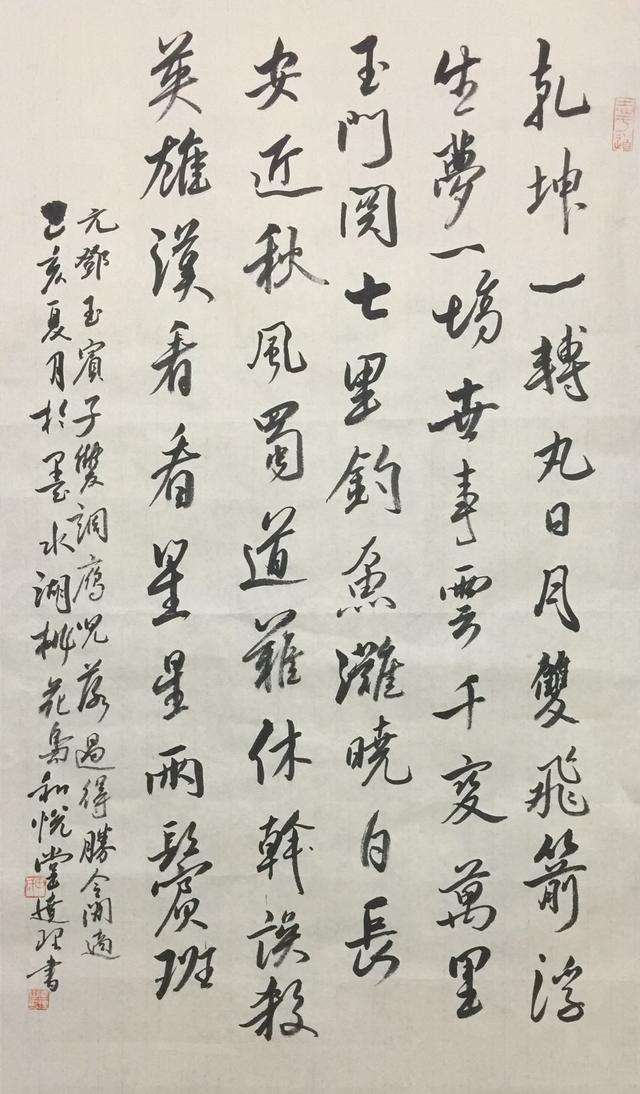 乾坤一轉丸日月雙飛箭浮
生夢一場世事雲千變萬里
玉門関七里釣魚灘曉日長
安近秋風蜀道難休幹誤殺
英雄漢看看星星兩鬢斑
元鄧玉賓子雙調雁兒落過得勝令閒適
己亥夏月於墨水湖桃花島和悅堂 書